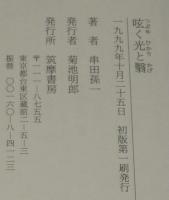 呟く光と翳
つぶや ひかり かげ
一九九九年十月二十五日 初版第一刷発行
著者 串田孫一
発行者 菊池明郎
発行所 筑摩書房
〒一一一―八七五五
東京都台東区蔵前二―五―三
振替 〇〇一六〇―八―四一二三